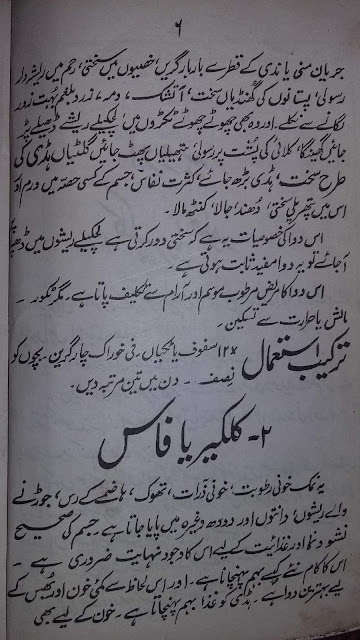 ۶
جریان منی یا ندی کے قطرے بار بار گریں، خصیوں میں سختی، رحم میں ریشہ دار
رسولی، پستانوں کی گھنڈیاں سخت، آتشک، دمہ، زرد بلغم بہت زور
لگانے سے نکلے۔ اور وہ بھی چھوٹے چھوٹے ٹکڑوں میں، لچکیلے ریشے ڈھیلے پڑ
جائیں گھینگا، کلائی کی پشت پر رسولی، ہتھیلیاں پھٹ جائیں گلٹیاں ہڈی کی
طرح سخت، ہڈی بڑھ جائے، کثرت نفاس، جسم کے کسی حصہ میں ورم اور
اس میں پتھریلی سختی، دُھند، جالا، کنٹھ مالا۔
اس دوا کی خصوصیات یہ ہے کہ سختی دور کرتی ہے لچکیلے ریشوں میں
آ جائے تو یہ دوا مفید ثابت ہوتی ہے۔
اس دوا کا مریض مرطوب موسم اور آرام سے تکلیف پاتا ہے۔ مگر ٹکور۔
مالش یا حرارت سے تسکین۔
ترکیب استعمال ۱۲x سفوف یا ٹکیاں۔ فی خوراک چار گرین۔ بچوں کو
نصف۔ دن میں تین مرتبہ دیں۔
۲۔ کلکیریا فاس
یہ نمک خونی رطوبت، خونی ذرات، تھوک، ہاضمے کے رس، جوڑنے
والے ریشوں، دانتوں اور دودھ وغیرہ میں پایا جاتا ہے۔ جسم کی صحیح
نشوونما اور غذائیت کے لیے اس کا وجود نہایت ضروری ہے۔
اس کا کام نئے سیلے بہم پہنچانا ہے۔ اور اس لحاظ سے کمئی خون اور
لیے بہترین دوا ہے۔ ہڈی کو غذا بہم پہنچاتا ہے۔ خون کے لیے بھی